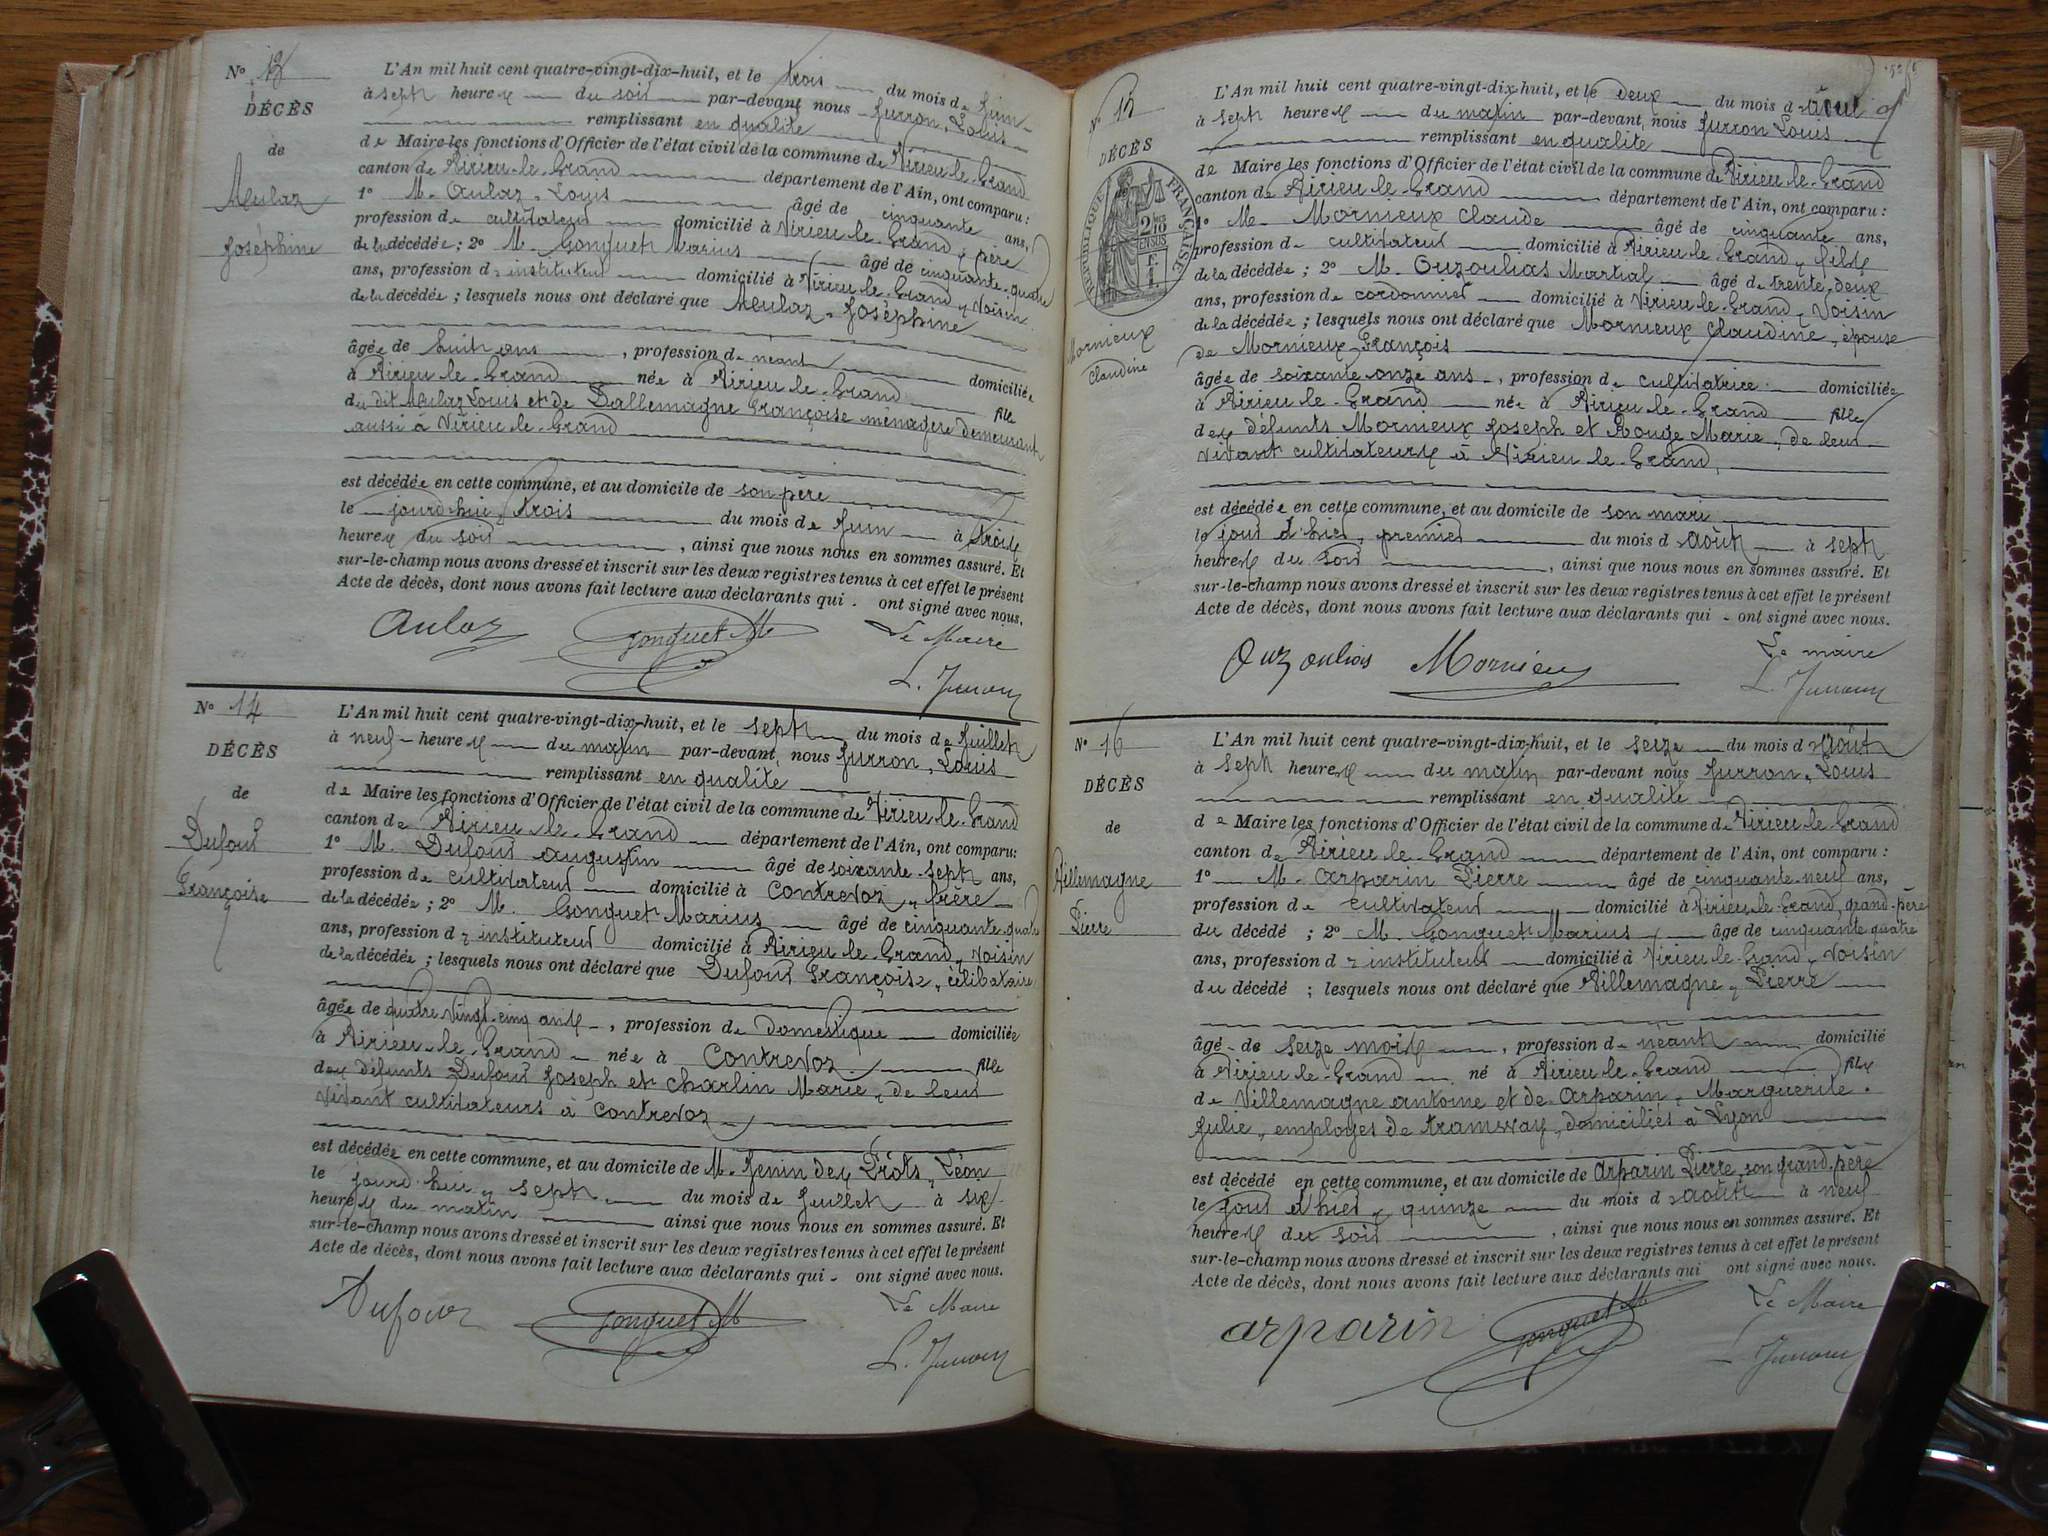 N° 13
DÉCÈS
de
Meulaz
Joséphine
L'An mil huit cent quatre-vingt-dix-huit, et le trois du mois de Juin
à sept heures du soir par-devant nous Jurron, Louis
remplissant en qualité
de Maire les fonctions d'Officier de l'état civil de la commune de Virieu-le-Grand
canton de Virieu-le-Grand département de l'Ain, ont comparu :
1° M. Aulaz, Louis âgé de cinquante ans,
profession de cultivateur domicilié à Virieu-le-Grand, père
de la décédée ; 2° M. Gonguet Marius âgé de cinquante-quatre
ans, profession d'instituteur domicilié à Virieu-le-Grand, voisin
de la décédée ; lesquels nous ont déclaré que Meulaz, Joséphine
âgée de huit ans, profession de néant domiciliée
à Virieu-le-Grand née à Virieu-le-Grand fille
du dit Meulaz Louis et de Dallemagne Françoise ménagère demeurant
aussi à Virieu-le-Grand
est décédée en cette commune, et au domicile de son père
le jourd'hui, trois du mois de Juin à trois
heures du soir, ainsi que nous nous en sommes assuré. Et
sur-le-champ nous avons dressé et inscrit sur les deux registres tenus à cet effet le présent
Acte de décès, dont nous avons fait lecture aux déclarants qui ont signé avec nous.
Aulaz Gonguet M Le Maire
L. Jurron
N° 14
DÉCÈS
de
Dufour
Françoise
L'An mil huit cent quatre-vingt-dix-huit, et le sept du mois de Juillet
à neuf heures du matin par-devant nous Jurron, Louis
remplissant en qualité
de Maire les fonctions d'Officier de l'état civil de la commune de Virieu-le-Grand
canton de Virieu-le-Grand département de l'Ain, ont comparu:
1° M. Dufour Augustin âgé de soixante-sept ans,
profession de cultivateur domicilié à Contrevoz, frère
de la décédée ; 2° M. Gonguet Marius âgé de cinquante-quatre
ans, profession d'instituteur domicilié à Virieu-le-Grand, voisin
de la décédée ; lesquels nous ont déclaré que Dufour Françoise, célibataire
âgée de quatre vingt-cinq ans, profession de domestique domiciliée
à Virieu-le-Grand née à Contrevoz fille
des défunts Dufour Joseph et Charlin Marie, de leur
vivant cultivateurs à Contrevoz
est décédée en cette commune, et au domicile de M. Jenin des Prôts, Léon
le jourd'hui, sept du mois de Juillet à six
heures du matin ainsi que nous nous en sommes assuré. Et
sur-le-champ nous avons dressé et inscrit sur les deux registres tenus à cet effet le présent
Acte de décès, dont nous avons fait lecture aux déclarants qui ont signé avec nous.
Dufour Gonguet M Le Maire
L. Jurron
N° 15
DÉCÈS
de
RÉPUBLIQUE FRANÇAISE
2/10 EN SUS
Mornieux
Claudine
L'An mil huit cent quatre-vingt-dix-huit, et le deux du mois d'Août
à sept heures du matin par-devant nous Jurron Louis
remplissant en qualité
de Maire les fonctions d'Officier de l'état civil de la commune de Virieu-le-Grand
canton de Virieu-le-Grand département de l'Ain, ont comparu :
1° M. Mornieux Claude âgé de cinquante ans,
profession de cultivateur domicilié à Virieu-le-Grand, fils
de la décédée ; 2° M. Ouzoulias Martial âgé de trente-deux
ans, profession de cordonnier domicilié à Virieu-le-Grand, voisin
de la décédée ; lesquels nous ont déclaré que Mornieux Claudine, épouse
de Mornieux François
âgée de soixante-onze ans, profession de cultivatrice domiciliée
à Virieu-le-Grand née à Virieu-le-Grand fille
des défunts Mornieux Joseph et Rouge Marie, de leur
vivant cultivateurs à Virieu-le-Grand,
est décédée en cette commune, et au domicile de son mari
le jour d'hier, premier du mois d'août à sept
heures du soir, ainsi que nous nous en sommes assuré. Et
sur-le-champ nous avons dressé et inscrit sur les deux registres tenus à cet effet le présent
Acte de décès, dont nous avons fait lecture aux déclarants qui ont signé avec nous.
Ouzoulias Mornieux Le maire
L. Jurron
N° 16
DÉCÈS
de
Villemagne
Pierre
L'An mil huit cent quatre-vingt-dix-huit, et le seize du mois d'Août
à sept heures du matin par-devant nous Jurron, Louis
remplissant en qualité
de Maire les fonctions d'Officier de l'état civil de la commune de Virieu-le-Grand
canton de Virieu-le-Grand département de l'Ain, ont comparu :
1° M. Arparin Pierre âgé de cinquante-neuf ans,
profession de cultivateur domicilié à Virieu-le-Grand, grand-père
du décédé ; 2° M. Gonguet Marius âgé de cinquante quatre
ans, profession d'instituteur domicilié à Virieu-le-Grand, voisin
du décédé ; lesquels nous ont déclaré que Villemagne, Pierre
âgé de seize mois, profession de néant domicilié
à Virieu-le-Grand né à Virieu-le-Grand fils
de Villemagne Antoine et de Arparin, Marguerite
Julie, employés de tramway, domiciliés à Lyon
est décédé en cette commune, et au domicile de Arparin Pierre, son grand-père
le jour d'hier, quinze du mois d'août à neuf
heures du soir, ainsi que nous nous en sommes assuré. Et
sur-le-champ nous avons dressé et inscrit sur les deux registres tenus à cet effet le présent
Acte de décès, dont nous avons fait lecture aux déclarants qui ont signé avec nous.
arparin Gonguet M Le Maire
L. Jurron